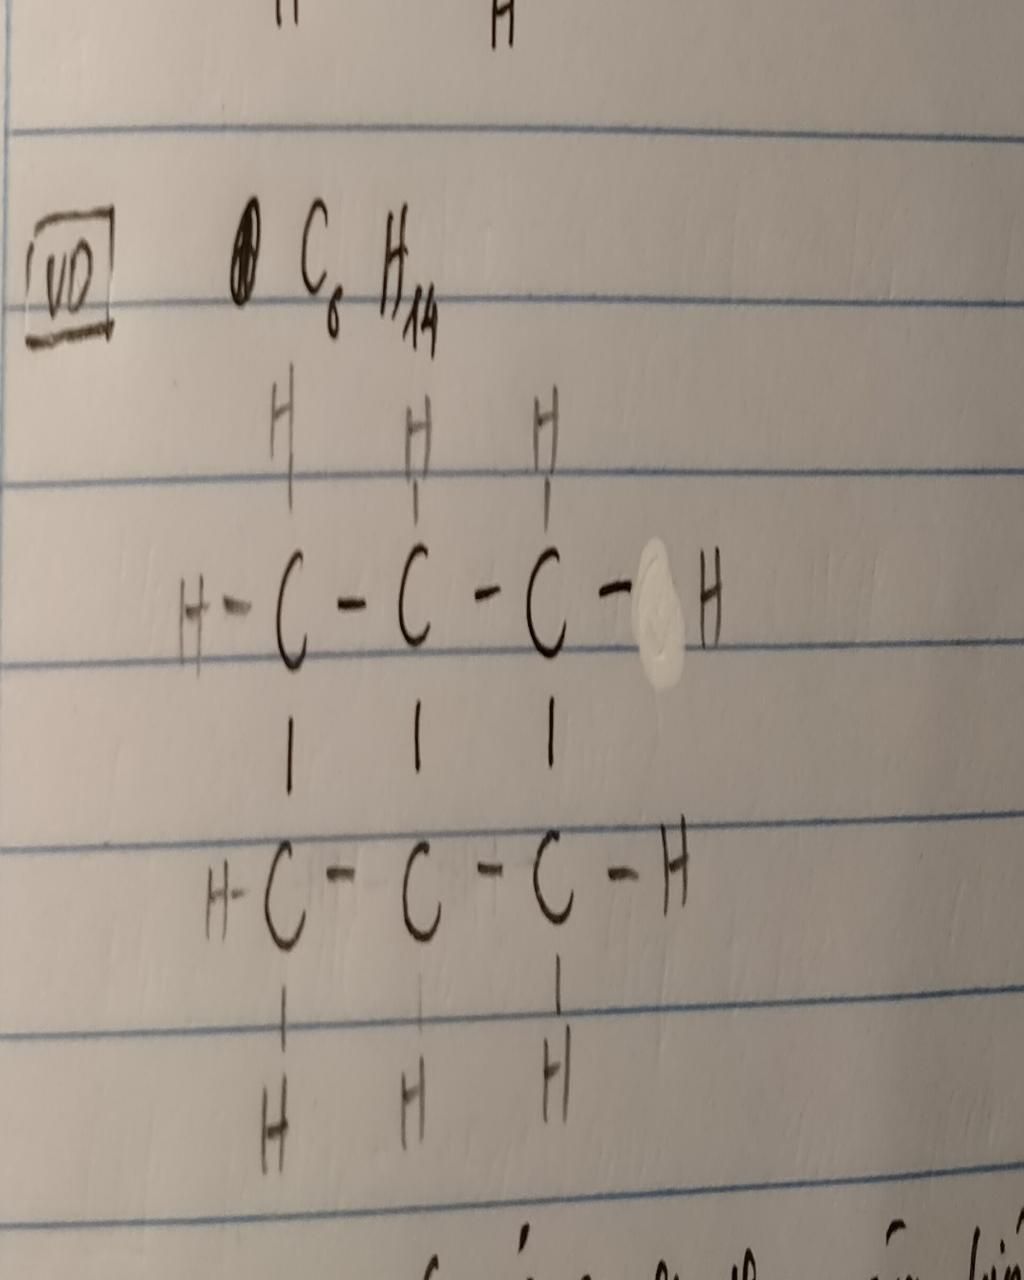 H H
VD C6 H14
H H H
H - C - C - C - H
H - C - C - C - H
H H H